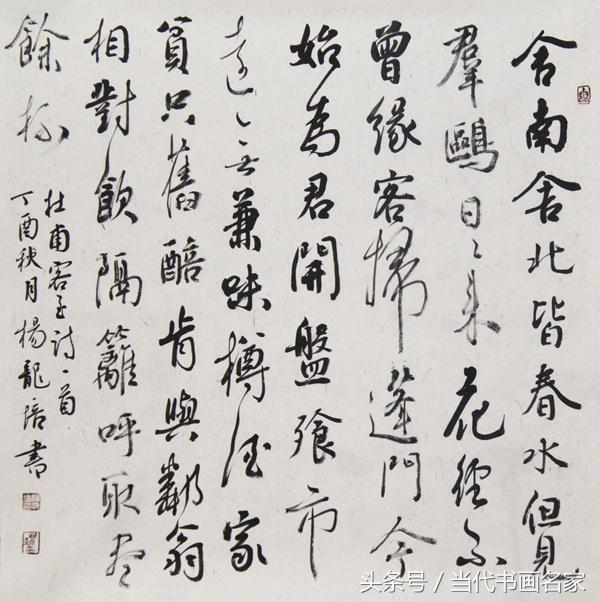 舍南舍北皆春水但見
羣鷗日〻來花徑不
曾緣客掃蓬門今
始為君開盤飧市
遠無兼味樽酒家
貧只舊醅肯與鄰翁
相對飲隔籬呼取盡
餘杯
杜甫客至詩一首
丁酉秋月楊龍培書
头条号 / 当代书画名家